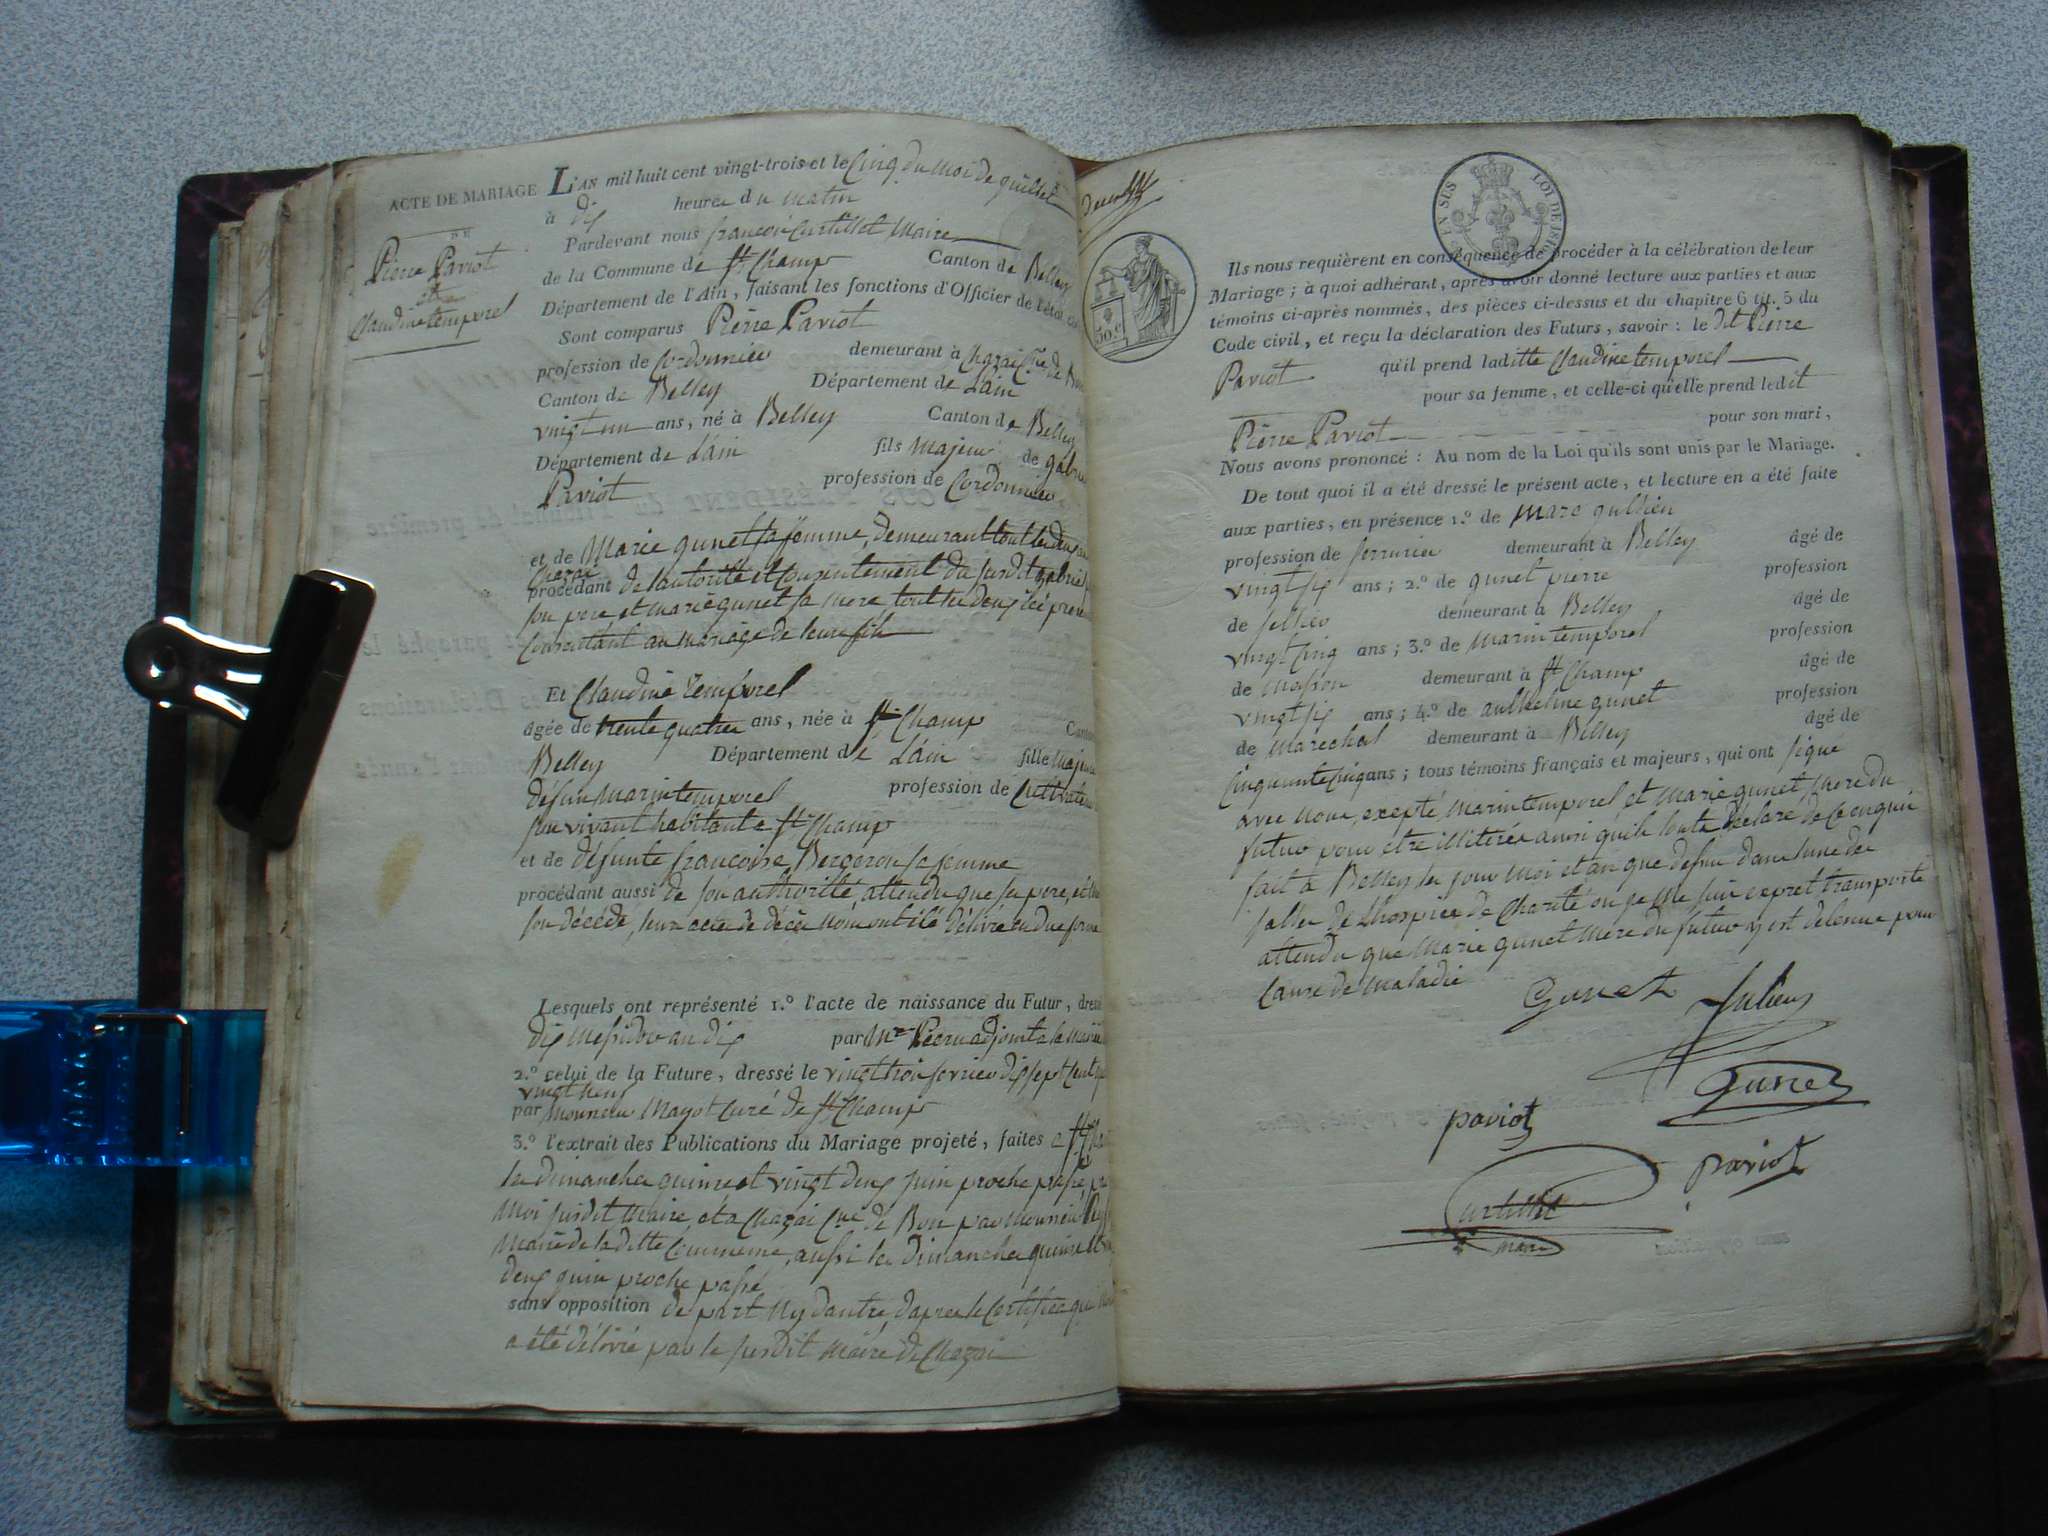 ACTE DE MARIAGE
DE
Pierre Paviot
et
Claudine temporel
L'AN mil huit cent vingt-trois et le Cinq du moi de quillet
à dix heures du matin
Pardevant nous françois Curtillet Maire
de la Commune de St Champ Canton de Belley
Département de l'Ain, faisant les fonctions d'Officier de l'état
Sont comparus Pierre Paviot
profession de Cordonnier demeurant à Chazai Cne de Bon
Canton de Belley Département de L'ain
vingt un ans, né à Belley Canton de Belley
Département de L'ain fils Majeur de gabriel
Paviot profession de Cordonnier
et de Marie gunet sa femme, demeurant tout les deux
Chazai
procédant de l'autorité et Consentement du susdit gabriel
son pere et marie gunet sa mere tout les deux ici
Consentant au mariage de leur fils
Et Claudine Temporel
âgée de trente quatre ans, née à St Champ
Belley Département de L'ain fille Majeure
defun Marin temporel profession de Cultivateur
son vivant habitant a St Champ
et de défunte francoise Bergeron sa femme
procédant aussi de son authorité, attendu que sa pere, et
son décédé, leur acte de décès nom ont été délivré en due forme
Lesquels ont représenté 1.º l'acte de naissance du Futur, dressé
dix Messidor an dix par Mr Pecru adjoint a la mairie
2.º celui de la Future, dressé le vingt troi fevrier dix sept cent
vingt neuf
par Monsieur Mayot Curé de St Champ
3.º l'extrait des Publications du Mariage projeté, faites a St
les dimanches quinze et vingt deux juin proche passé,
moi susdit Maire, et a Chazai Cne de Bon par Monsieur
Maire de la ditte Commune, aussi les dimanches quinze et
deux quin proche passé
sans opposition de part Ny dautre, daprès le Certificat qui
a été délivré par le susdit Maire de Chazai
Ils nous requièrent en conséquence de procéder à la célébration de leur
Mariage ; à quoi adhérant, après avoir donné lecture aux parties et aux
témoins ci-après nommés, des pièces ci-dessus et du chapitre 6 tit. 5 du
Code civil, et reçu la déclaration des Futurs, savoir : le dit Pierre
Paviot qu'il prend laditte Claudine temporel
pour sa femme, et celle-ci qu'elle prend ledit
Pierre Paviot pour son mari,
Nous avons prononcé : Au nom de la Loi qu'ils sont unis par le Mariage.
De tout quoi il a été dressé le présent acte, et lecture en a été faite
aux parties, en présence 1.º de Marc
profession de serrurier demeurant à Belley âgé de
vingt six ans ; 2.º de gunet pierre profession
de sellier demeurant à Belley âgé de
vingt Cinq ans ; 3.º de Marin temporel profession
de Masson demeurant à St Champ âgé de
vingt six ans ; 4.º de anthelme gunet profession
de Marechal demeurant à Belley âgé de
Cinquante Cinq ans ; tous témoins français et majeurs, qui ont signé
avec nous, excepté, Marin temporel et Marie gunet, Mere du
futur pour etre illiteré ainsi quils lont déclaré de Ce enqui
fait à Belley les jour Moi et an que dessu dans l'une des
salles de L'hospice de Charité ou je Me suis expret transporté
attendu que Marie gunet Mere du futur y est detenue pour
Cause de Maladie
Gunet Julien
Gunet
paviot
paviot
Curtillet
Maire
EN SUS
LOI DE 1816
50.c